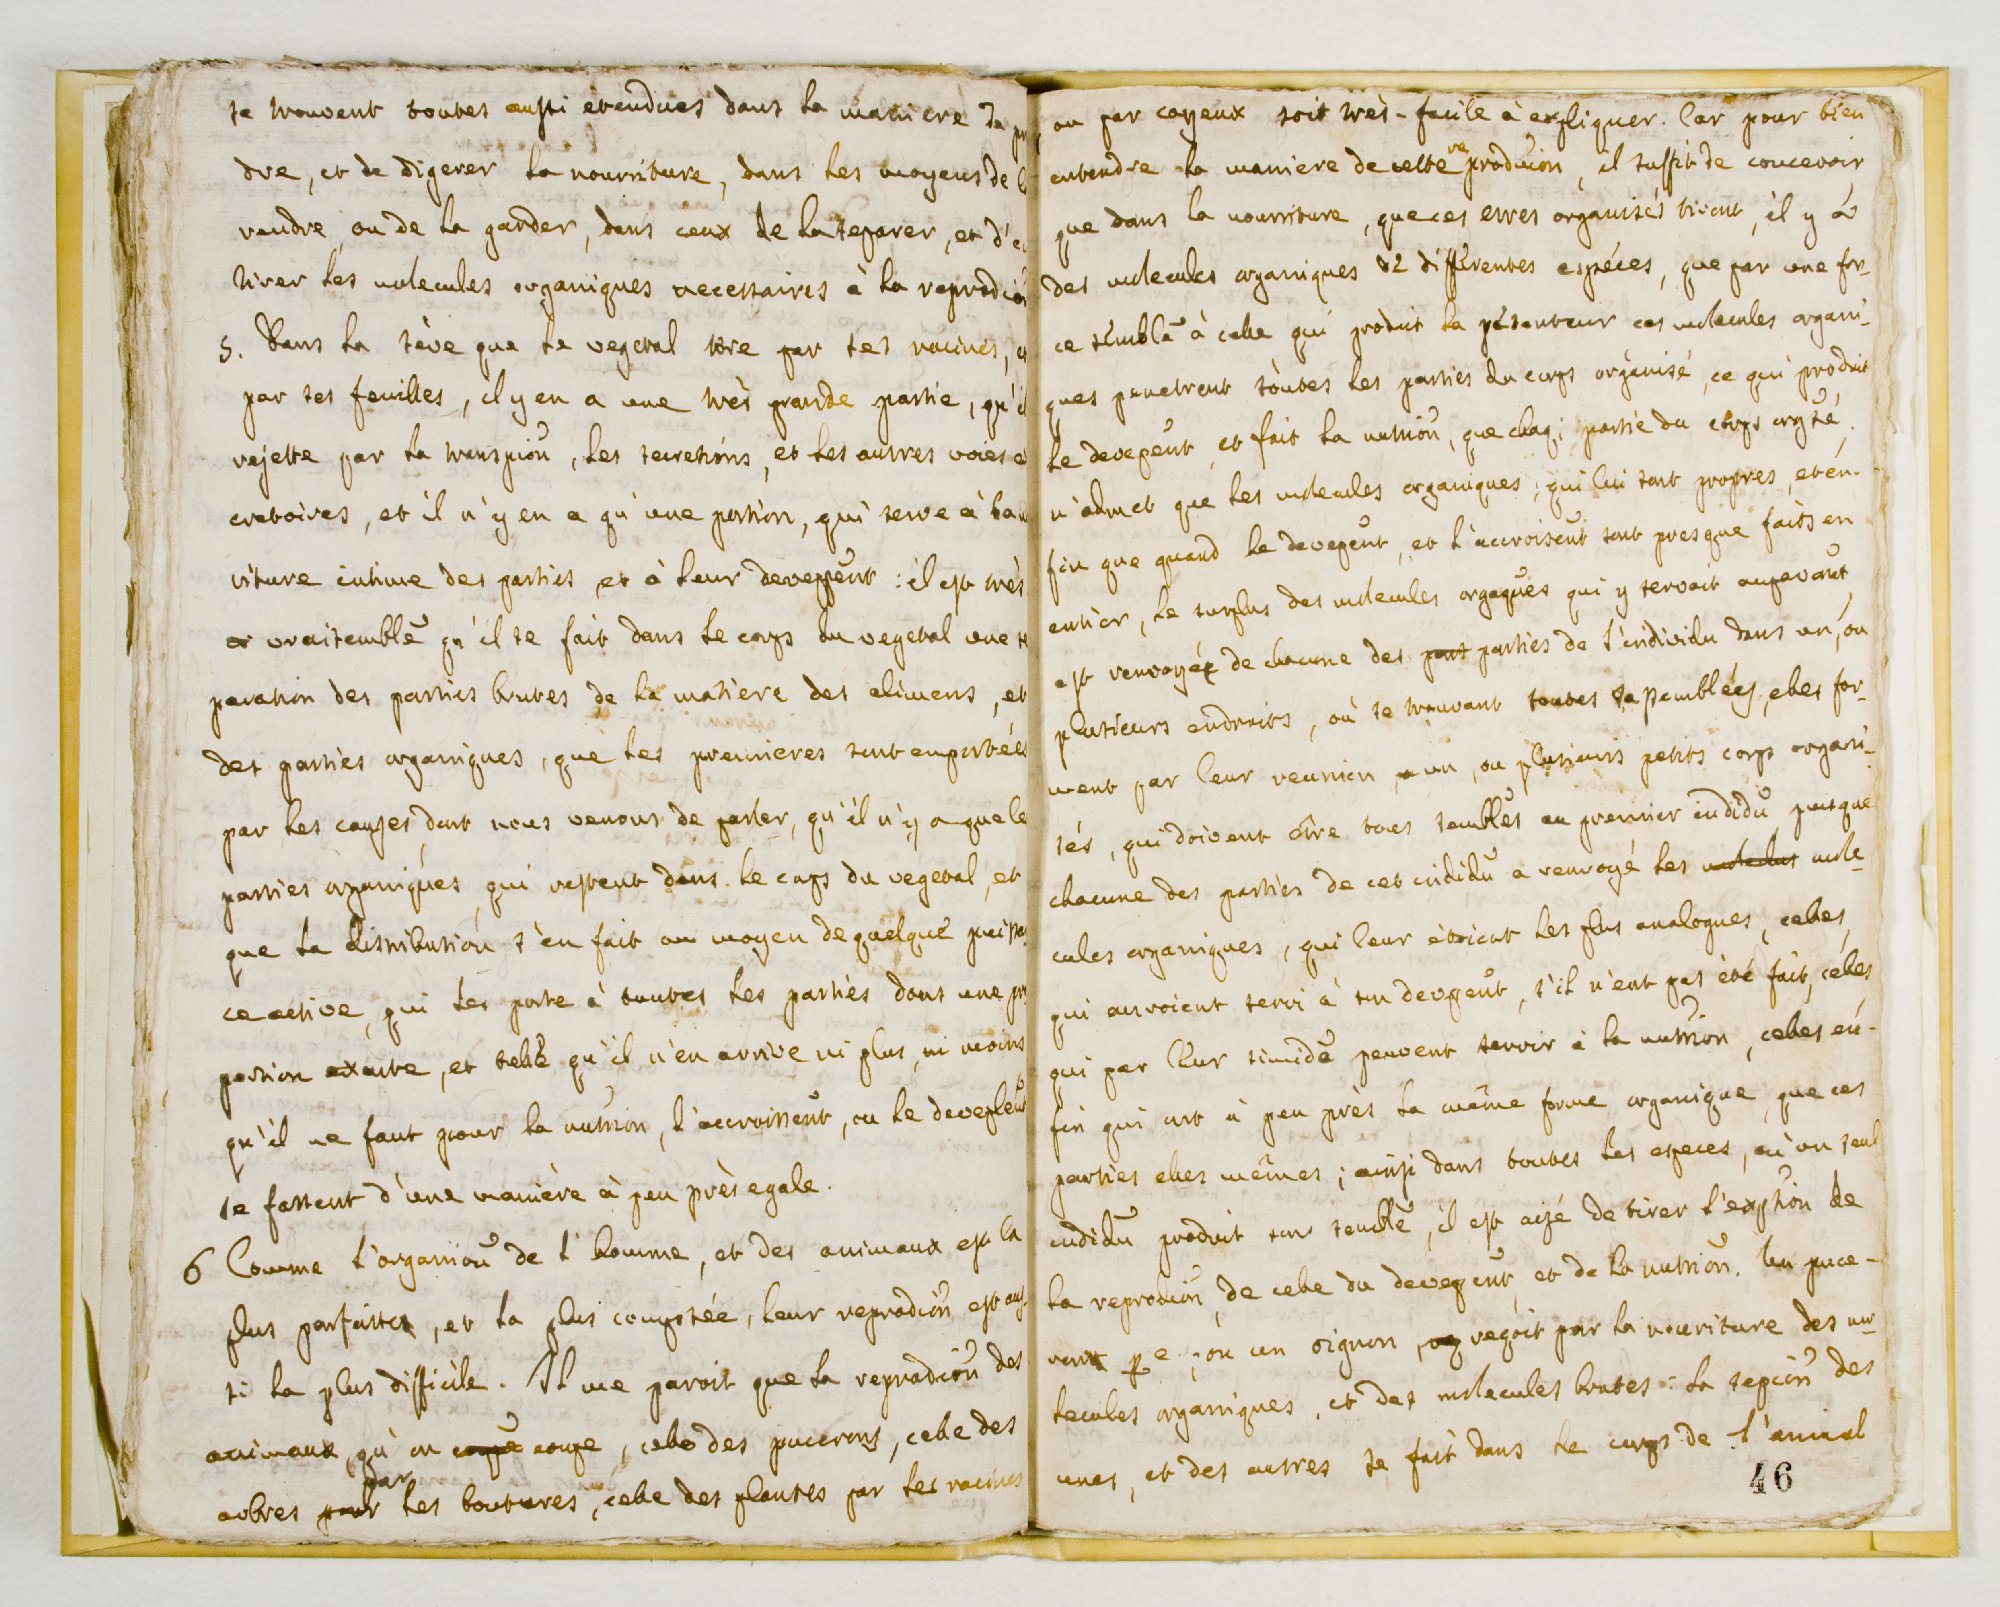 se trouvent toutes aussi étendues dans la maniere de pr
dre, et de digerer la nourriture, dans les moyens de la
rendre, ou de la garder, dans ceux de la separer, et d'en
tirer les molecules organiques necessaires à la reprodion
5. Dans la sève que le vegetal tire par ses racines, et
par ses feuilles, il y en a une très grande partie, qu'il
rejette par la transpion, les secretions, et les autres voies ex
cretoires, et il n'y en a qu'une portion, qui serve à la nou
riture intime des parties et à leur devepent : il est très
vraisemble qu'il se fait dans le corps du vegetal une se
paration des parties brutes de la matiere des alimens, et
des parties organiques, que les premieres sont emportées
par les causes dont nous venons de parler, qu'il n'y a que le
parties organiques qui restent dans le corps du vegetal, et
que la distribution s'en fait au moyen de quelque puissan
ce active, qui les porte à toutes les parties dans une pro
portion exacte, et telle qu'il n'en arrive ni plus, ni moins
qu'il ne faut pour la nutrion, l'accroissent, ou le devepent
se fassent d'une maniere à peu près egale.
6 Comme l'organion de l'homme, et des animaux est la
plus parfaite, et la plus composée, leur reprodion est aus-
si la plus difficile. Il me paroit que la reprodion des
animaux, qu'on coupe coupe, celle des pucerons, celle des
arbres pour par les boutures, celle des plantes par les racines
ou par cayeux soit très-facile à expliquer. Car pour bien
entendre la maniere de cette reprodion, il suffit de concevoir
que dans la nourriture, que ces etres organisés tirent, il y a
des molecules organiques de differentes espéces, que par une for-
ce semble à celle qui produit la pesanteur ces molecules organi-
ques penetrent toutes les parties du corps organisé, ce qui produit
le devepent et fait la nutrion, que chaq; partie du corps orgsé
n'admet que les molecules organiques, qui lui sont propres, et en-
fin que quand le devepent, et l'accroisent sont presque faits en
entier, le surplus des molecules orgaques qui y servoit aupavant
est renvoyé de chacune des part parties de l'individu dans un, ou
plusieurs endroits, où se trouvant toutes rassemblées, elles for-
ment par leur reunion un, ou plusieurs petits corps organi-
sés, qui doivent être tous sembles au premier indidu puisque
chacune des parties de cet indidu a renvoyé les molecules mole-
cules organiques, qui leur étoient les plus analogues, celles
qui auroient servi à son devpent, s'il n'eut pas été fait, celles
qui par leur simide peuvent servir à la nutrion, celles en-
fin qui ont à peu près la même forme organique, que ces
parties elles mêmes ; ainsi dans toutes les especes, où un seul
indidu produit son semble, il est aisé de tirer l'explion de
la reprodion, de celle du devepent, et de la nutrion. Un puce-
ron p. e. ; ou un oignon, reçoit par la nouriture des mo-
lecules organiques, et des molecules brutes : la sepion des
unes, et des autres se fait dans le corps de l'animal
46